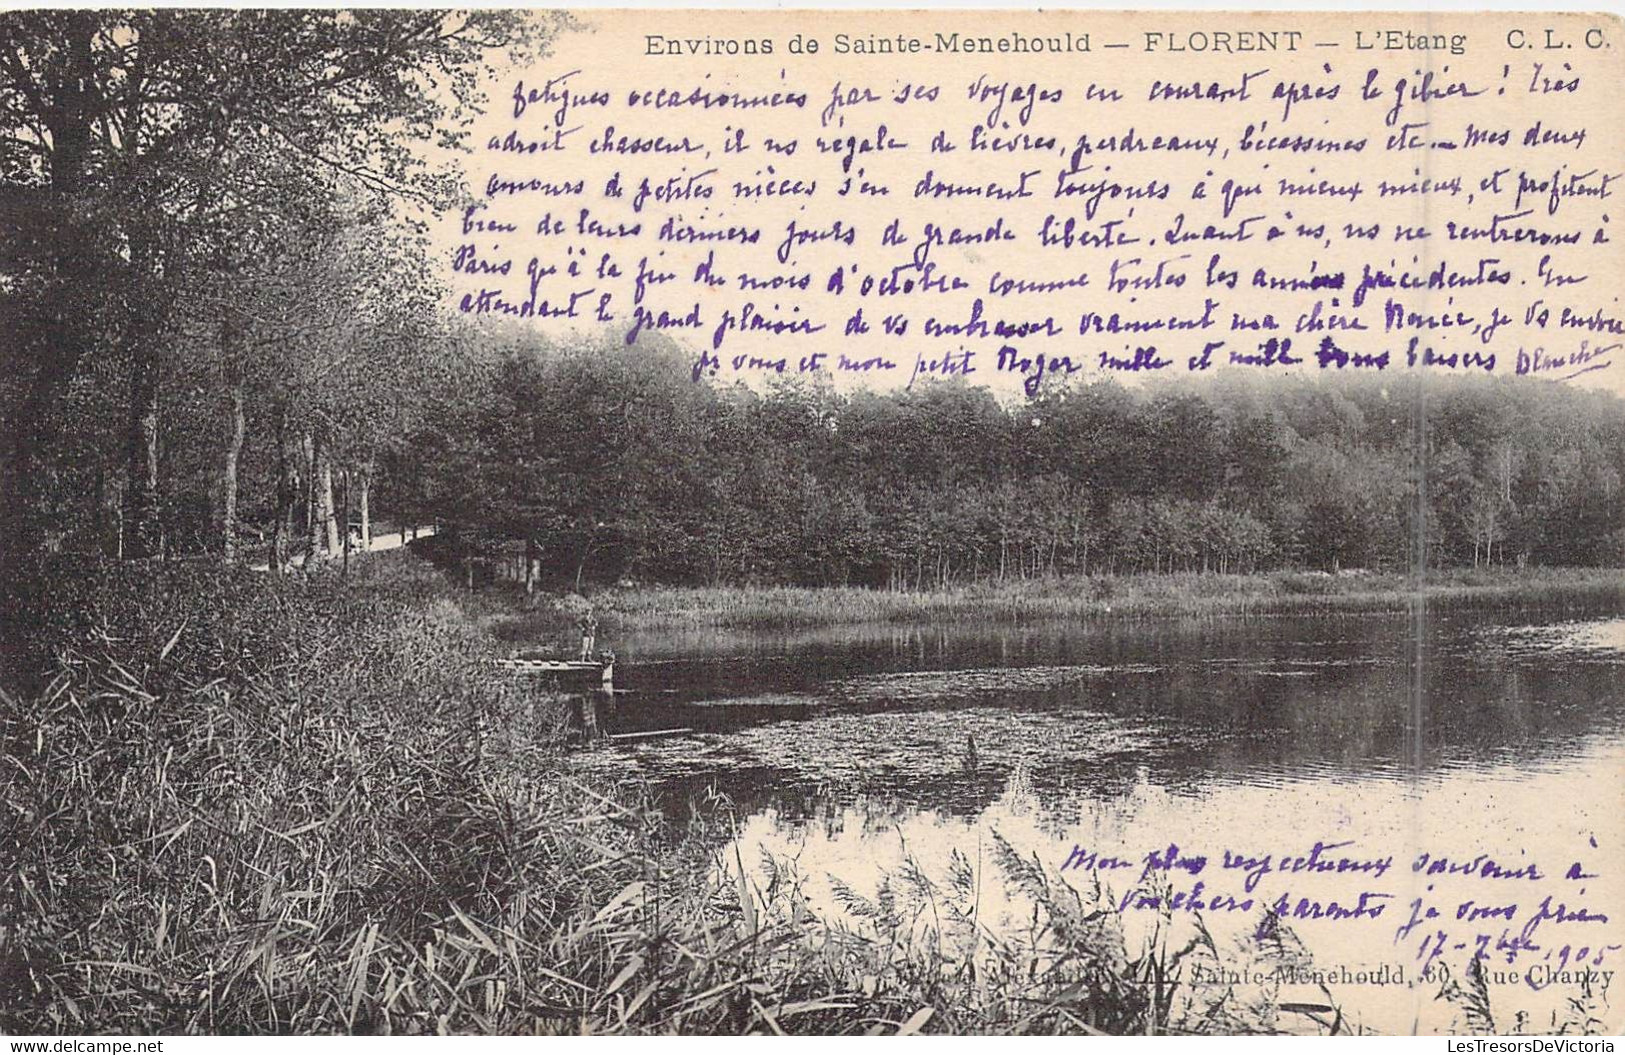 Environs de Sainte-Menehould — FLORENT — L'Etang C. L. C.
fatigues occasionnées par ses voyages en courant après le gibier ! Très
adroit chasseur, il ns régale de lièvres, perdreaux, bécassines etc — Mes deux
amours de petites nièces s'en donnent toujours à qui mieux mieux, et profitent
bien de leurs derniers jours de grande liberté. Quant à ns, ns ne rentrerons à
Paris qu'à la fin du mois d'octobre comme toutes les années précédentes. En
attendant le grand plaisir de vs embrasser vraiment ma chère Renée, je vs envoie
pr vous et mon petit Roger mille et mille bons baisers Blanche
Mon plus respectueux souvenir à
vos chers parents je vous prie
17 - 7bre 1905
Alexandre Sainte-Menehould, 60, Rue Chanzy
LesTresorsDeVictoria